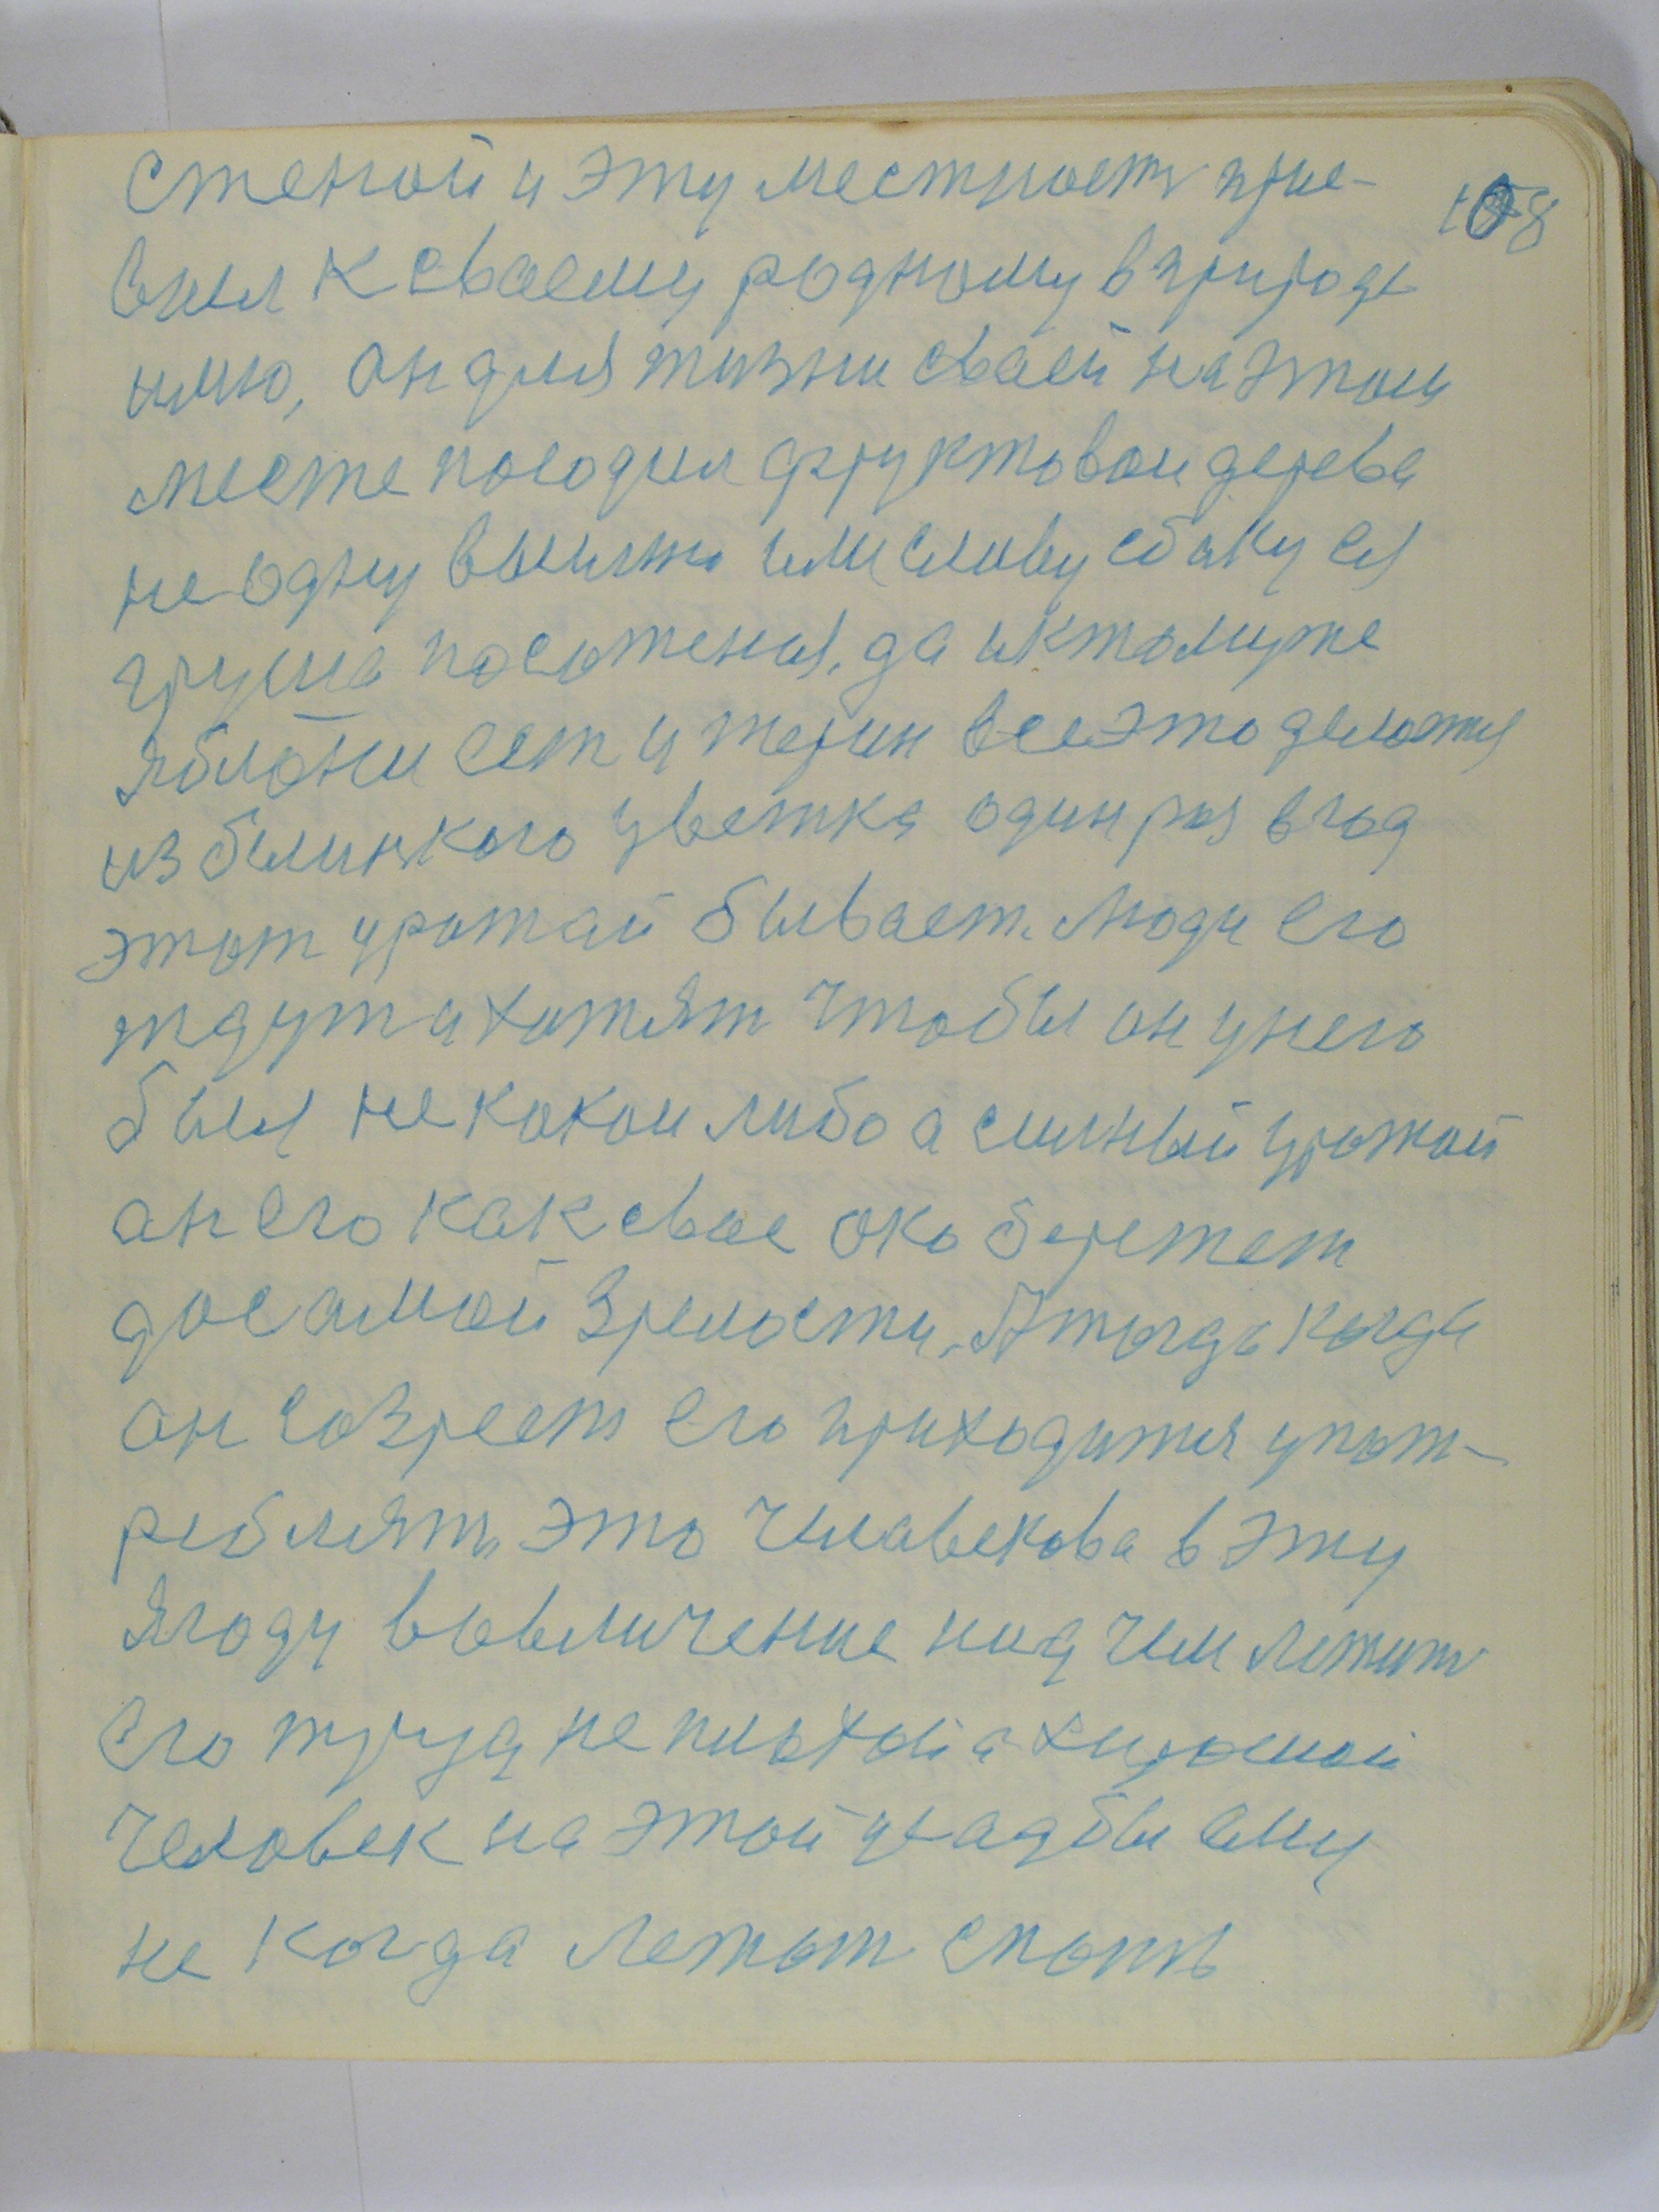 108
стеной и эту местность при-
вил к сваему родному в природе
имю, он для жизни сваей на этом
месте посодил фруктовои дерева
не одну вышню или сливу
груша посоженая, да и к тому же
яблони сеть и терин все это делается
из белинкого цветка один раз в год
этот урожай бывает. Люди его
ждут и хотят чтобы он у него
был не какои либо а сильный урожай
он его как свае око бережет
до самой зрелости. А тогда когда
он созреет его приходится упот-
реблять, это чилавекова в эту
ягоду вовличение над чем лежит
его труд не плохой а хироший
человек на этой усадьби ему
не когда лежат спать